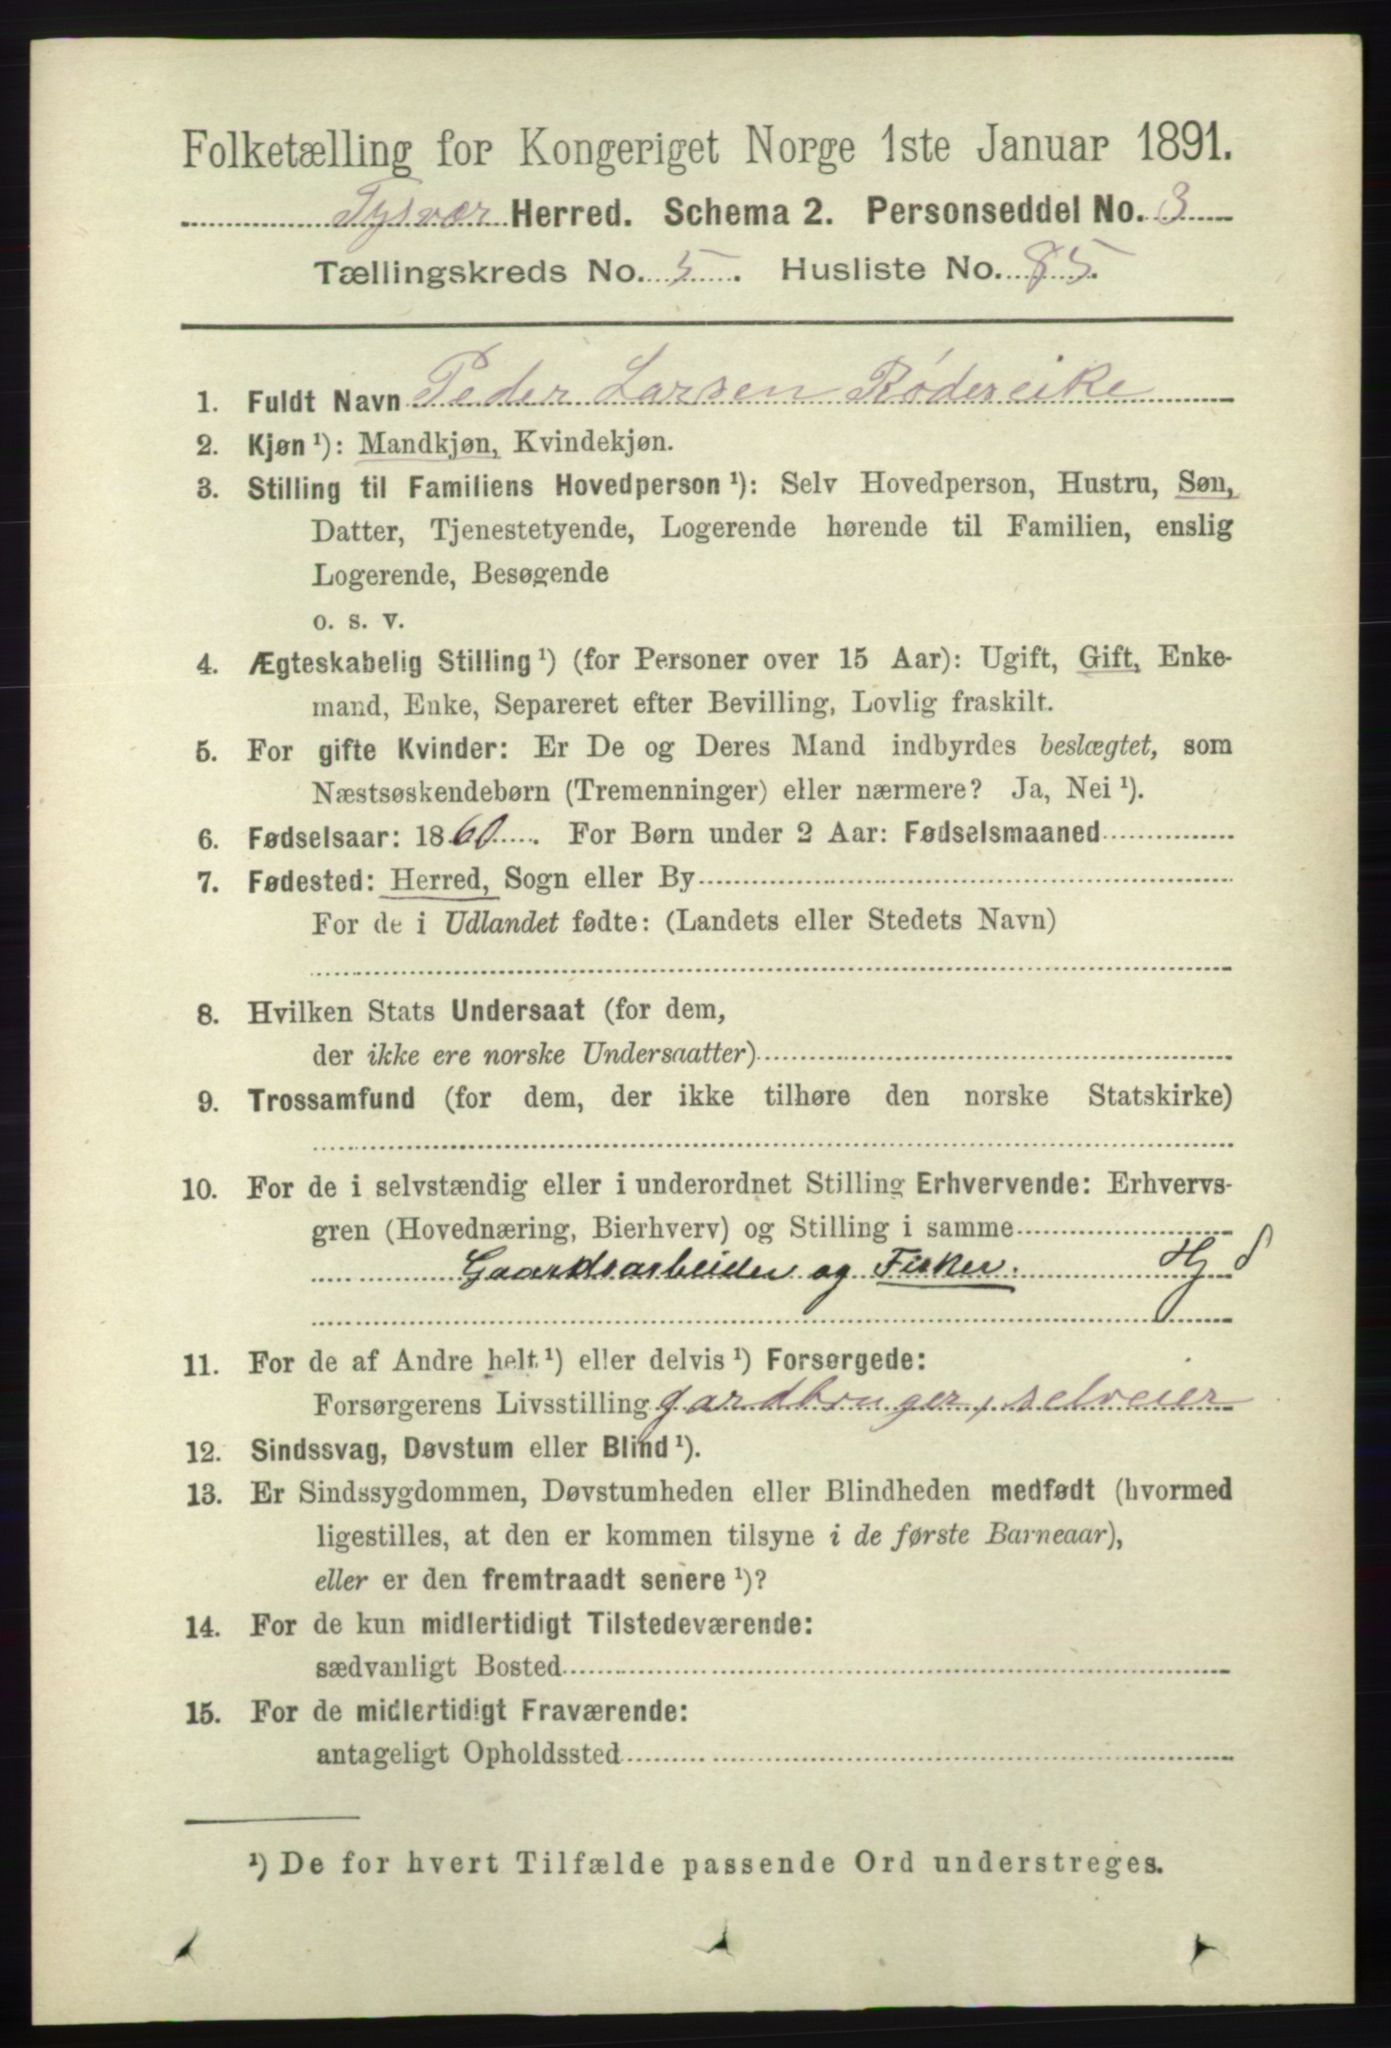 Folketælling for Kongeriget Norge 1ste Januar 1891.
Tysvær Herred. Schema 2. Personseddel No. 3
Tællingskreds No. 5. Husliste No. 85.
1. Fuldt Navn Peder Larsen Rødereike
2. Kjøn ¹): Mandkjøn, Kvindekjøn.
3. Stilling til Familiens Hovedperson ¹): Selv Hovedperson, Hustru, Søn,
Datter, Tjenestetyende, Logerende hørende til Familien, enslig
Logerende, Besøgende
o. s. v.
4. Ægteskabelig Stilling ¹) (for Personer over 15 Aar): Ugift, Gift, Enke-
mand, Enke, Separeret efter Bevilling, Lovlig fraskilt.
5. For gifte Kvinder: Er De og Deres Mand indbyrdes beslægtet, som
Næstsøskendebørn (Tremenninger) eller nærmere? Ja, Nei ¹).
6. Fødselsaar: 1860. For Børn under 2 Aar: Fødselsmaaned
7. Fødested: Herred, Sogn eller By
For de i Udlandet fødte: (Landets eller Stedets Navn)
8. Hvilken Stats Undersaat (for dem,
der ikke ere norske Undersaatter)
9. Trossamfund (for dem, der ikke tilhøre den norske Statskirke)
10. For de i selvstændig eller i underordnet Stilling Erhvervende: Erhvervs-
gren (Hovednæring, Bierhverv) og Stilling i samme
Gaardsarbeider og Fisker. Hj
11. For de af Andre helt ¹) eller delvis ¹) Forsørgede:
Forsørgerens Livsstilling gardbruger, selveier
12. Sindssvag, Døvstum eller Blind ¹).
13. Er Sindssygdommen, Døvstumheden eller Blindheden medfødt (hvormed
ligestilles, at den er kommen tilsyne i de første Barneaar),
eller er den fremtraadt senere ¹)?
14. For de kun midlertidigt Tilstedeværende:
sædvanligt Bosted
15. For de midlertidigt Fraværende:
antageligt Opholdssted
¹) De for hvert Tilfælde passende Ord understreges.